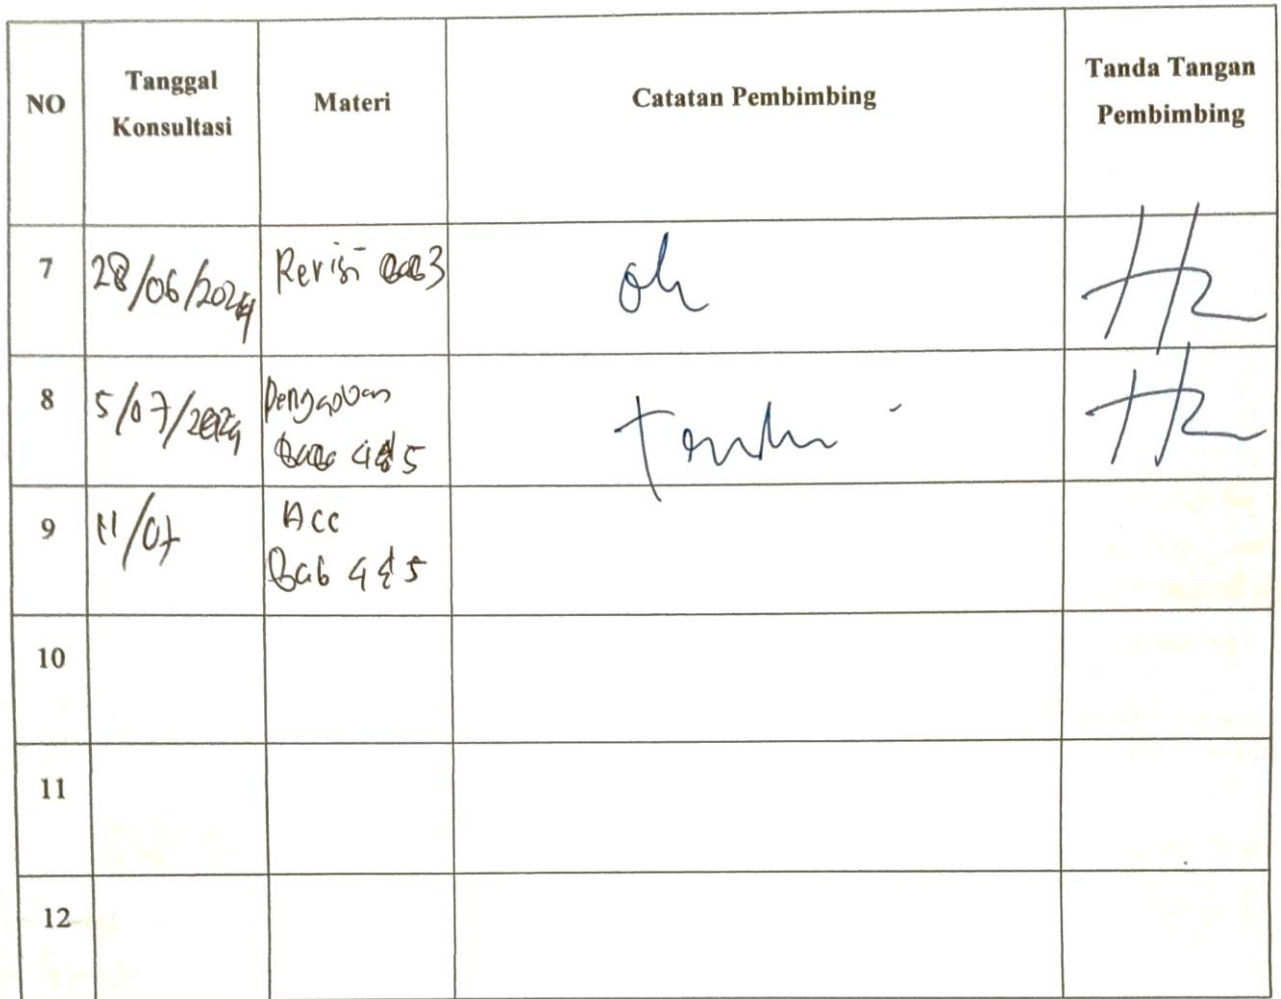 NO
Tanggal
Konsultasi
Materi
Catatan Pembimbing
Tanda Tangan
Pembimbing
7
28/06/2024
Revisi Bab 3
8
5/07/2024
Bab 4 & 5
9
11/07
Acc
Bab 4 & 5
10
11
12